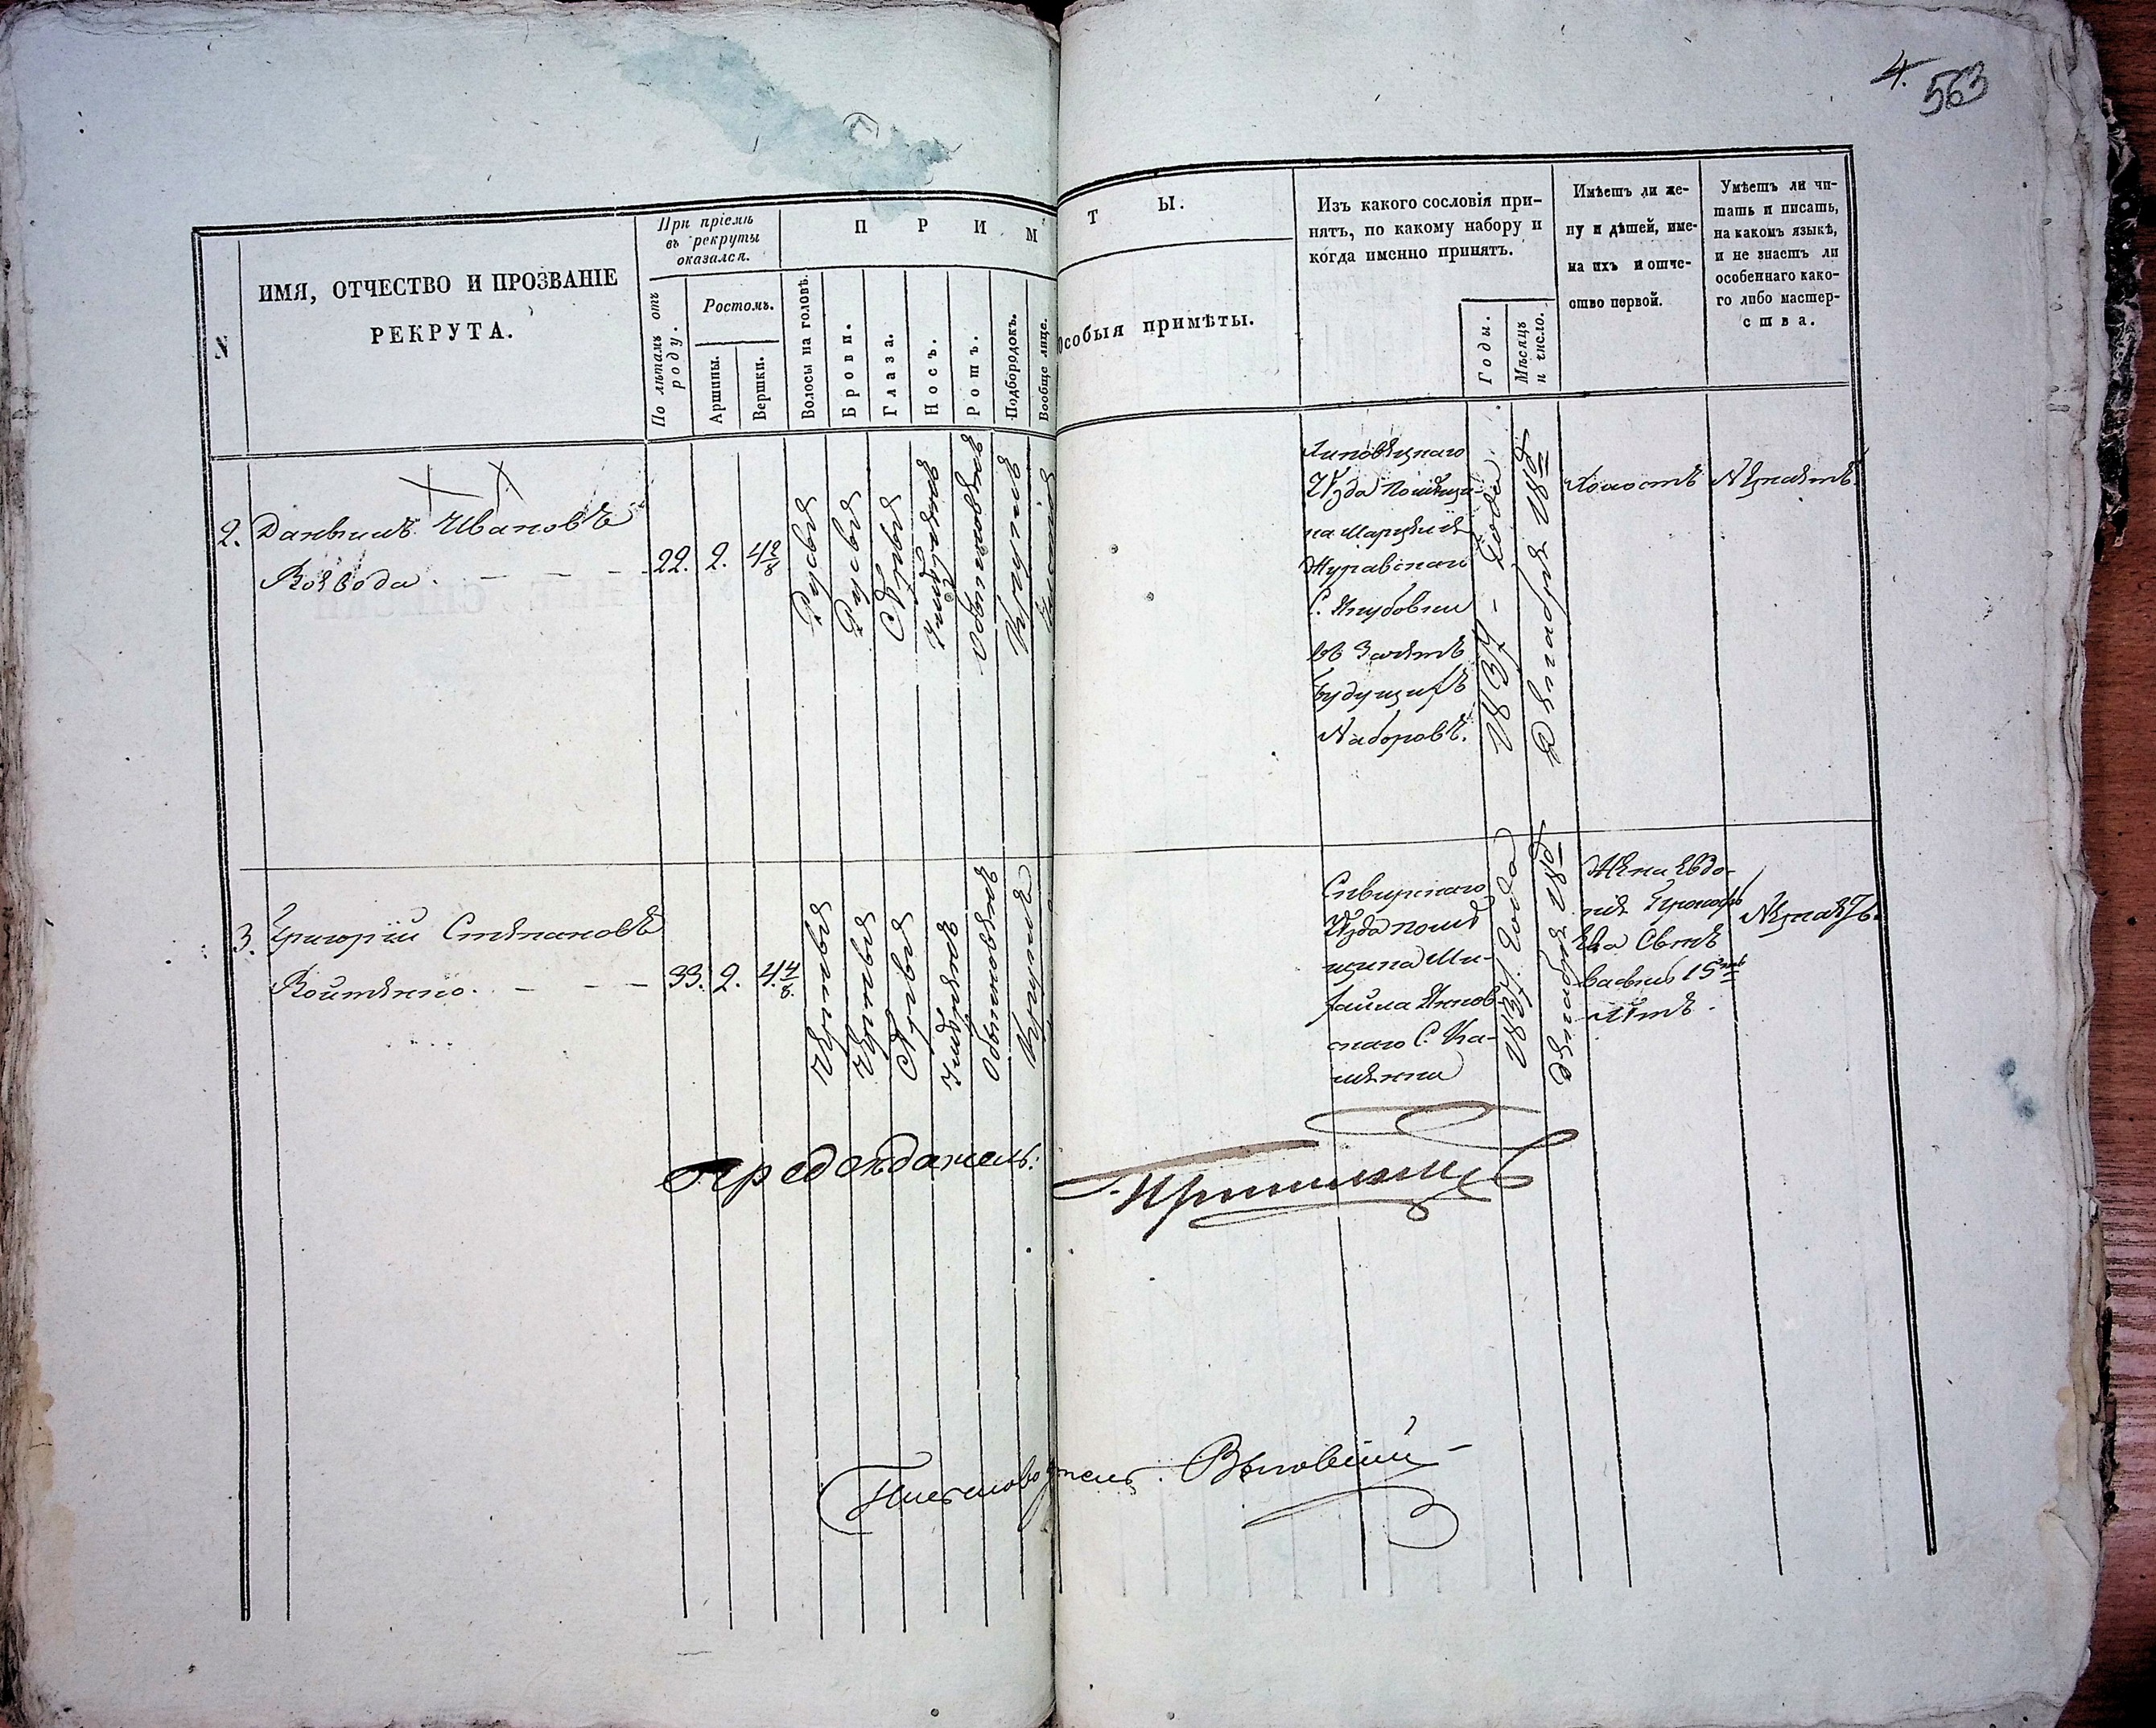 4. 563
N
ИМЯ, ОТЧЕСТВО И ПРОЗВАНІЕ
РЕКРУТА.
При пріемѣ
въ рекруты
оказался.
По лѣтамъ отъ
роду.
Ростомъ.
Аршины.
Вершки.
П Р И М
Волосы на головѣ.
Брови.
Глаза.
Носъ.
Ротъ.
Подбородокъ.
Вообще лице.
Т Ы.
Особыя примѣты.
Изъ какого сословія при-
нятъ, по какому набору и
когда именно принятъ.
Годы.
Мѣсяцъ
и число.
Имѣетъ ли же-
ну и дѣтей, име-
на ихъ и отче-
ство первой.
Умѣетъ ли чи-
тать и писать,
на какомъ языкѣ,
и не знаетъ ли
особеннаго како-
го либо мастер-
ства.
2.
Ивановъ
Воевода
22.
2.
4 2/8
Русыя
Русыя
Сѣрыя
Умѣренъ
Обыкновенъ
Круглъ
Липовецкаго
Уѣзда помѣщи-
ка
Журавскаго
С. Якубовки
въ Зачетъ
будущихъ
Наборовъ.
1837 - Года
Декабря 18
Холостъ
Незнаетъ.
3.
Григорій Степановъ
Войтенко.
33.
2.
4 4/8.
Черныя
Черныя
Сѣрыя
Умѣренъ
Обыкновенъ
Круглъ
Сквирскаго
Уѣзда помѣ
щика Ми-
хайла
скаго С. Ка-
менки
1837. Года
Декабря 18
Жена Евдо-
кія Прокофь
ева Сынъ
15
Лѣтъ.
Незнаетъ.
Предсѣдатель:
Письмоводитель.